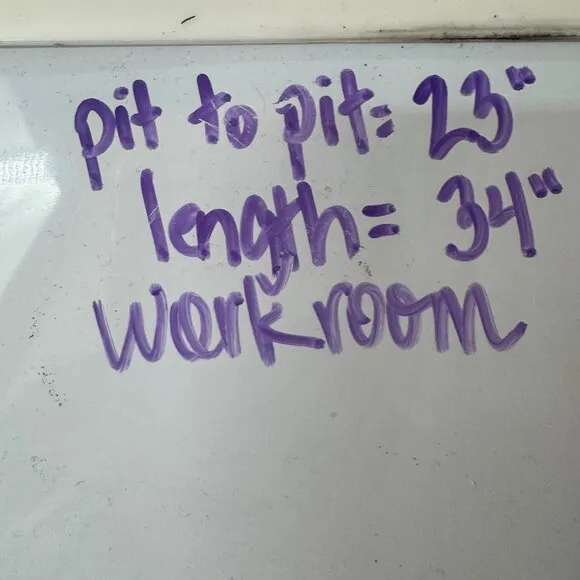 pit to pit = 23"
length = 34"
workroom